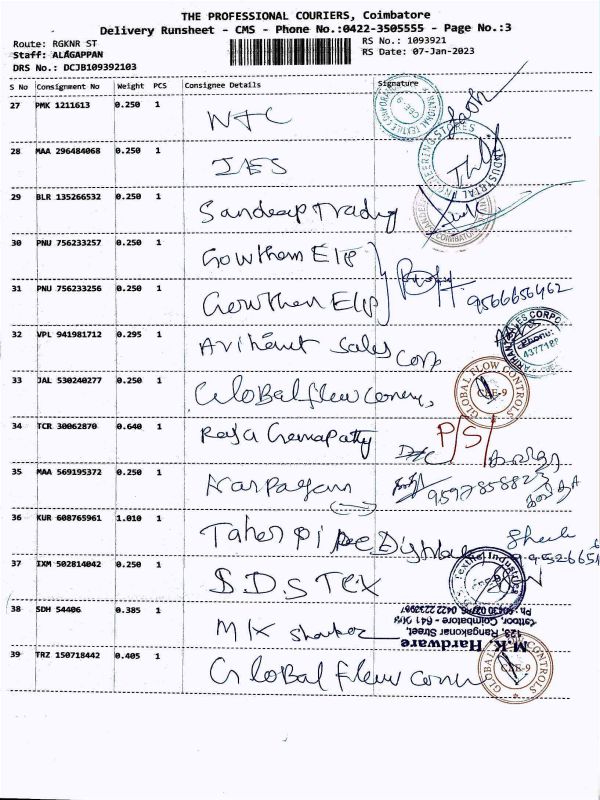 THE PROFESSIONAL COURIERS, Coimbatore
Delivery Runsheet - CMS - Phone No.:0422-3505555 - Page No.:3
Route: RGKNR ST
RS No.: 1093921
Staff: ALAGAPPAN
RS Date: 07-Jan-2023
DRS No.: DCJB109392103
S No Consignment No Weight PCS Consignee Details Signature
27 PMK 1211613 0.250 1 NTC
28 MAA 296484068 0.250 1 IES
29 BLR 135266532 0.250 1 Sandeep Trading
30 PNU 756233257 0.250 1 Gowthem Elp
31 PNU 756233256 0.250 1 Gowthem Elp 9566656462
32 VPL 941981712 0.295 1 Arihant Sales Corp
33 JAL 530240277 0.250 1 Global flow
GLOBAL FLOW CONTROLS
CBE-9
34 TCR 30062870 0.640 1 Raja P/S/
35 MAA 569195372 0.250 1 Karpagam
36 KUR 608765961 1.010 1 Taher pipe
37 IXM 502814042 0.250 1 S.D.S Tex
38 SDH 54406 0.385 1 MK
M.K. Hardware
123, Rangakonar Street,
Coimbatore - 641
39 TRZ 150718442 0.405 1 Global Flow
GLOBAL FLOW CONTROLS
CBE-9